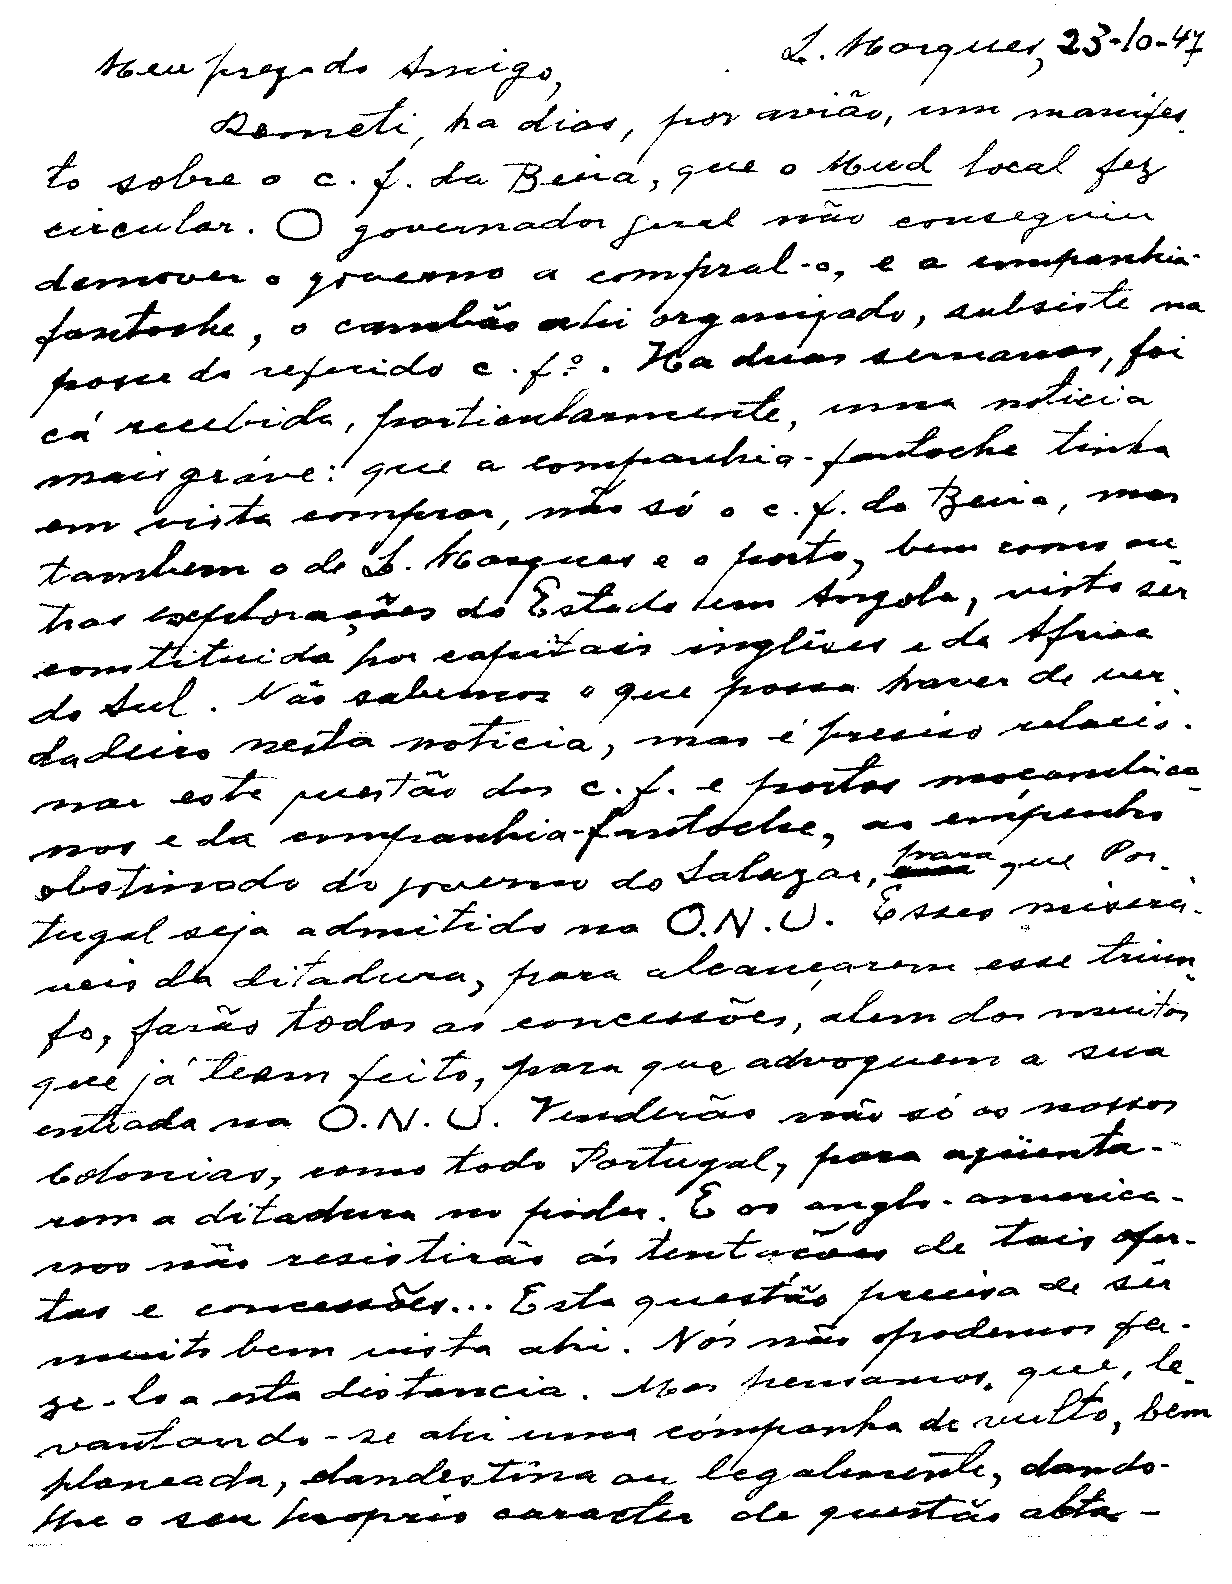 L. Marques, 23-10-47
Meu prezado Amigo,
Remeti, ha dias, por avião, um manifes-
to sobre o c. f. da Beira, que o Mud local fez
circular. O governador geral não conseguiu
demover o governo a compral-o, e a companhia-
fantoche, o cambão ahi organizado, subsiste na
posse do referido c. fº. Ha duas semanas, foi
cá recebida, particularmente, uma noticia
mais gráve: que a companhia-fantoche tinha
em vista comprar, não só o c. f. da Beira, mas
tambem o de L. Marques e o porto, bem como ou
tras explorações do Estado em Angola, visto sêr
constituida por capitais inglêses e da Africa
do Sul. Não sabemos o que possa haver de ver-
dadeiro nesta noticia, mas é preciso relacio-
nar esta questão dos c. f. e portos moçambica-
nos e da companhia-fantoche, ao empenho
obstinado do governo do Salazar, para que Por-
tugal seja admitido na O.N.U. Esses miserá-
veis da ditadura, para alcançarem esse triun-
fo, farão todas as concessões, alem das muitas
que já teem feito, para que advoguem a sua
entrada na O.N.U. Venderão não só as nossas
Colonias, como todo Portugal, para agüenta-
rem a ditadura no poder. E os anglo-america-
nos não resistirão ás tentações de tais ofer-
tas e concessões... Esta questão precisa de sêr
muito bem vista ahi. Nós não podemos fa-
ze-lo a esta distancia. Mas pensamos, que, le-
vantando-se ahi uma campanha de vulto, bem
planeada, clandestina ou legalmente, dando-
lhe o seu proprio caracter de questão alta-